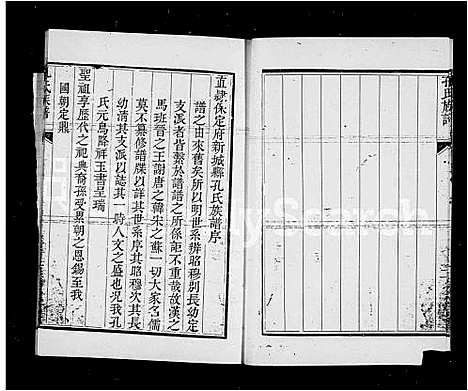 孔氏族譜
直隸保定府新城縣孔氏族譜序
譜之由來舊矣所以明世系辨昭穆別長幼定
支派者皆繫於譜譜之所係詎不重哉故漢之
馬班晉之王謝唐之韓宋之蘇一切大家名儒
莫不纂修譜牒以詳其世系昭穆次其長
幼清其支派以誌其一時人文之盛也況我孔
氏元鳥降祥玉書呈瑞
聖祖享歷代之祀典裔孫受累朝之恩錫至我
國朝定鼎
孔氏族譜